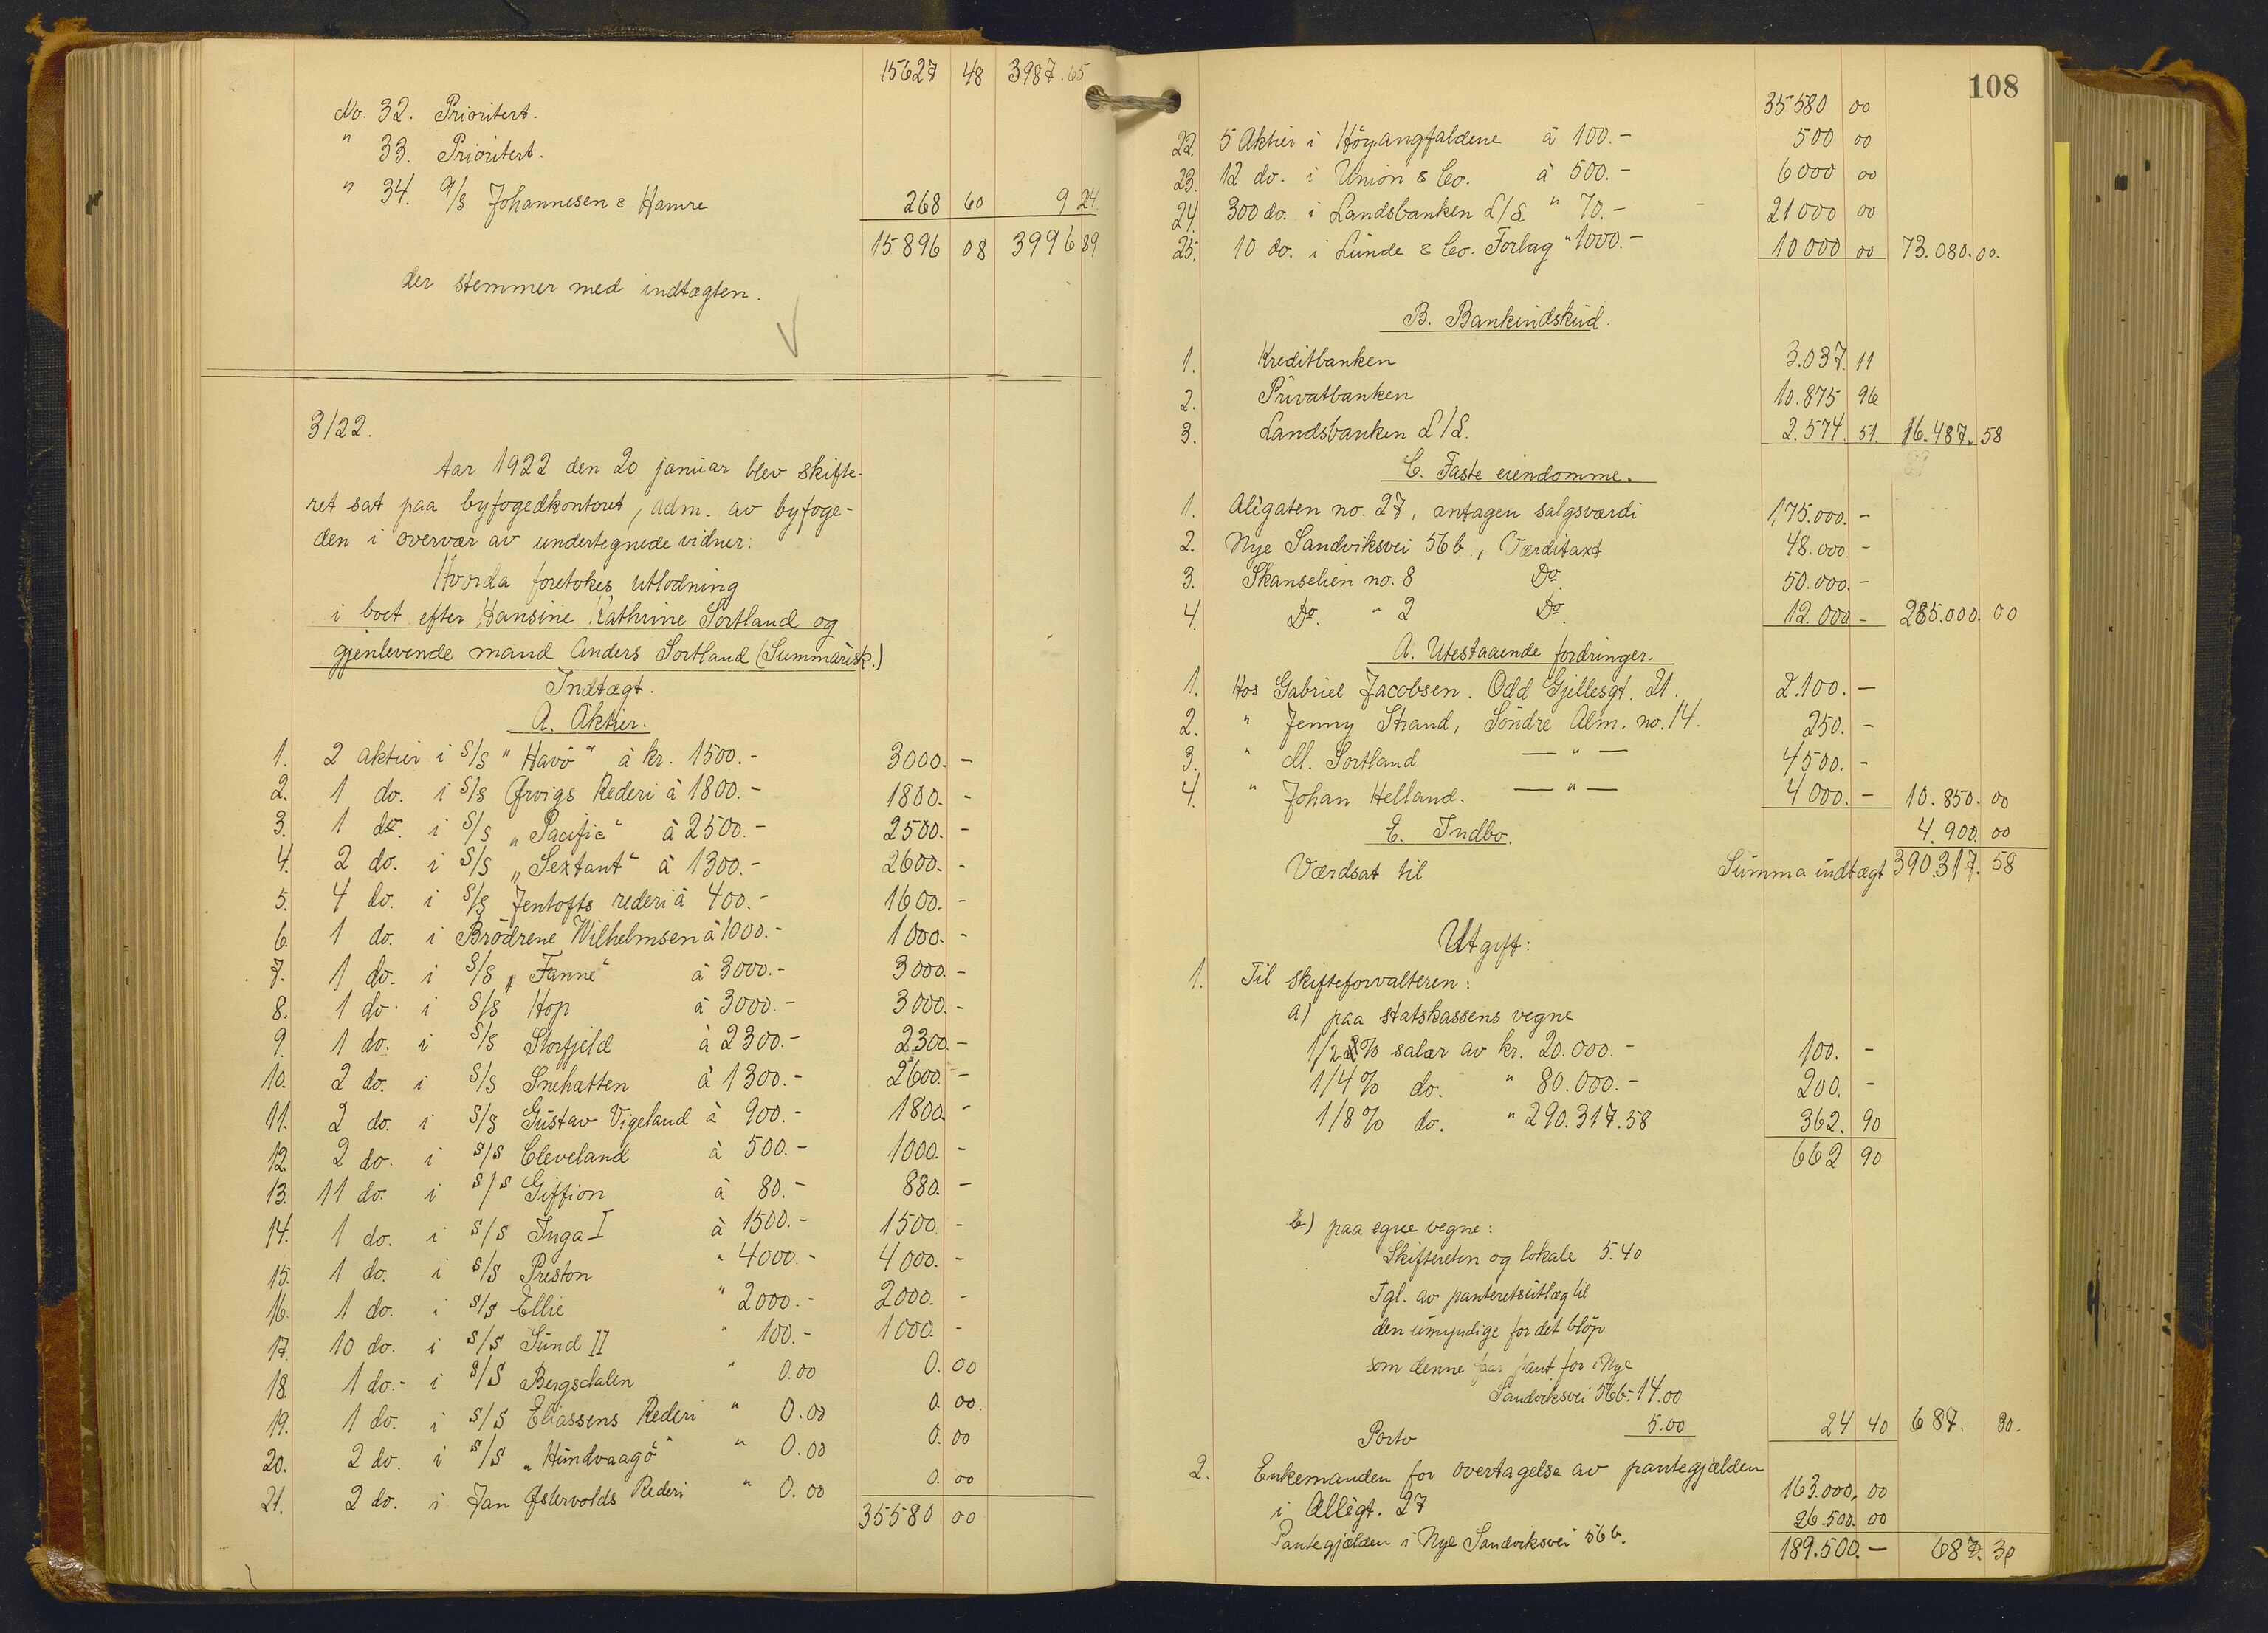 15627 48 3987.65
No. 32. Prioritert.
" 33. Prioritert.
" 34. A/S Johannesen & Hamre 268 60 9 24.
15896 08 3996 89
der stemmer med indtægten.
3/22.
Aar 1922 den 20 januar blev skifte-
ret sat paa byfogedkontoret, adm. av byfoge-
den i overvær av undertegnede vidner.
Hvorda foretokes utlodning
i boet efter Hansine Kathrine Sortland og
gjenlevende mand Anders Sortland (Summarisk.)
Indtægt.
A. Aktier.
1. 2 aktier i S/S "Havö" à kr. 1500.- 3000.-
2. 1 do. i S/S Ørvigs Rederi à 1800.- 1800.-
3. 1 do. i S/S „Pacific" à 2500.- 2500.-
4. 2 do. i S/S „Sextant" à 1300.- 2600.-
5. 4 do. i S/S Jentofts rederi à 400.- 1600.-
6. 1 do. i Brödrene Wilhelmsen à 1000.- 1000.-
7. 1 do. i S/S „Fanne" à 3000.- 3000.-
8. 1 do. i S/S Hop à 3000.- 3000.-
9. 1 do. i S/S Storfjeld à 2300.- 2300.-
10. 2 do. i S/S Snehatten à 1300.- 2600.-
11. 2 do. i S/S Gustav Vigeland à 900.- 1800.-
12. 2 do. i S/S Cleveland à 500.- 1000.-
13. 11 do. i S/S Giffion à 80.- 880.-
14. 1 do. i S/S Inga I à 1500.- 1500.-
15. 1 do. i S/S Preston " 4000.- 4000.-
16. 1 do. i S/S Ellie " 2000.- 2000.-
17. 10 do. i S/S Sund II " 100.- 1000.-
18. 1 do.- i S/S Bergsdalen " 0.00 0.00
19. 1 do. i S/S Eliassens Rederi " 0.00 0 00.
20. 2 do. i S/S „Hundvaagö" " 0.00 0.00
21. 2 do. i Jan Østervolds Rederi " 0.00 0.00
35580 00
108
35580 00
22. 5 Aktier i Höyangfaldene à 100.- 500 00
23. 12 do. i Union & Co. à 500.- 6000 00
24. 300 do. i Landsbanken L/L " 70.- 21000 00
25. 10 do. i Lunde & Co. Forlag " 1000.- 10000 00 73.080.00.
B. Bankindskud.
1. Kreditbanken 3.037.11
2. Privatbanken 10.875 96
3. Landsbanken L/L. 2.574.51. 16.487.58
C. Faste eiendomme.
1. Allégaten no. 27, antagen salgsværdi 175.000.-
2. Nye Sandviksvei 56b., Værditaxt 48.000 -
3. Skanselien no. 8 Do. 50.000.-
4. Do. " 2 Do. 12.000 - 285.000.00
A. Utestaaende fordringer.
1. Hos Gabriel Jacobsen. Odd Gjellesgt. 21. 2.100.-
2. " Jenny Strand, Söndre Alm. no. 14. 250.-
3. " M. Sortland — " — 4500.-
4. " Johan Helland. — " — 4000.- 10.850.00
E. Indbo. 4.900.00
Værdsat til Summa indtægt 390.317.58
Utgift:
1. Til skifteforvalteren:
a) paa statskassens vegne
1/2 % salær av kr. 20.000.- 100.-
1/4 % do. " 80.000.- 200.-
1/8 % do. " 290.317.58 362.90
662 90
b) paa egne vegne:
Skifteretten og lokale 5.40
Tgl. av panteretsutlæg til
den umyndige for det belöp
som denne faar pant for i Nye
Sandviksvei 56b.- 14.00
Porto 5.00 24 40 687. 30.
2. Enkemanden for overtagelse av pantegjælden
i Allégt. 27 163.000,00
Pantegjælden i Nye Sandviksvei 56b. 26.500.00
189.500.- 687.30